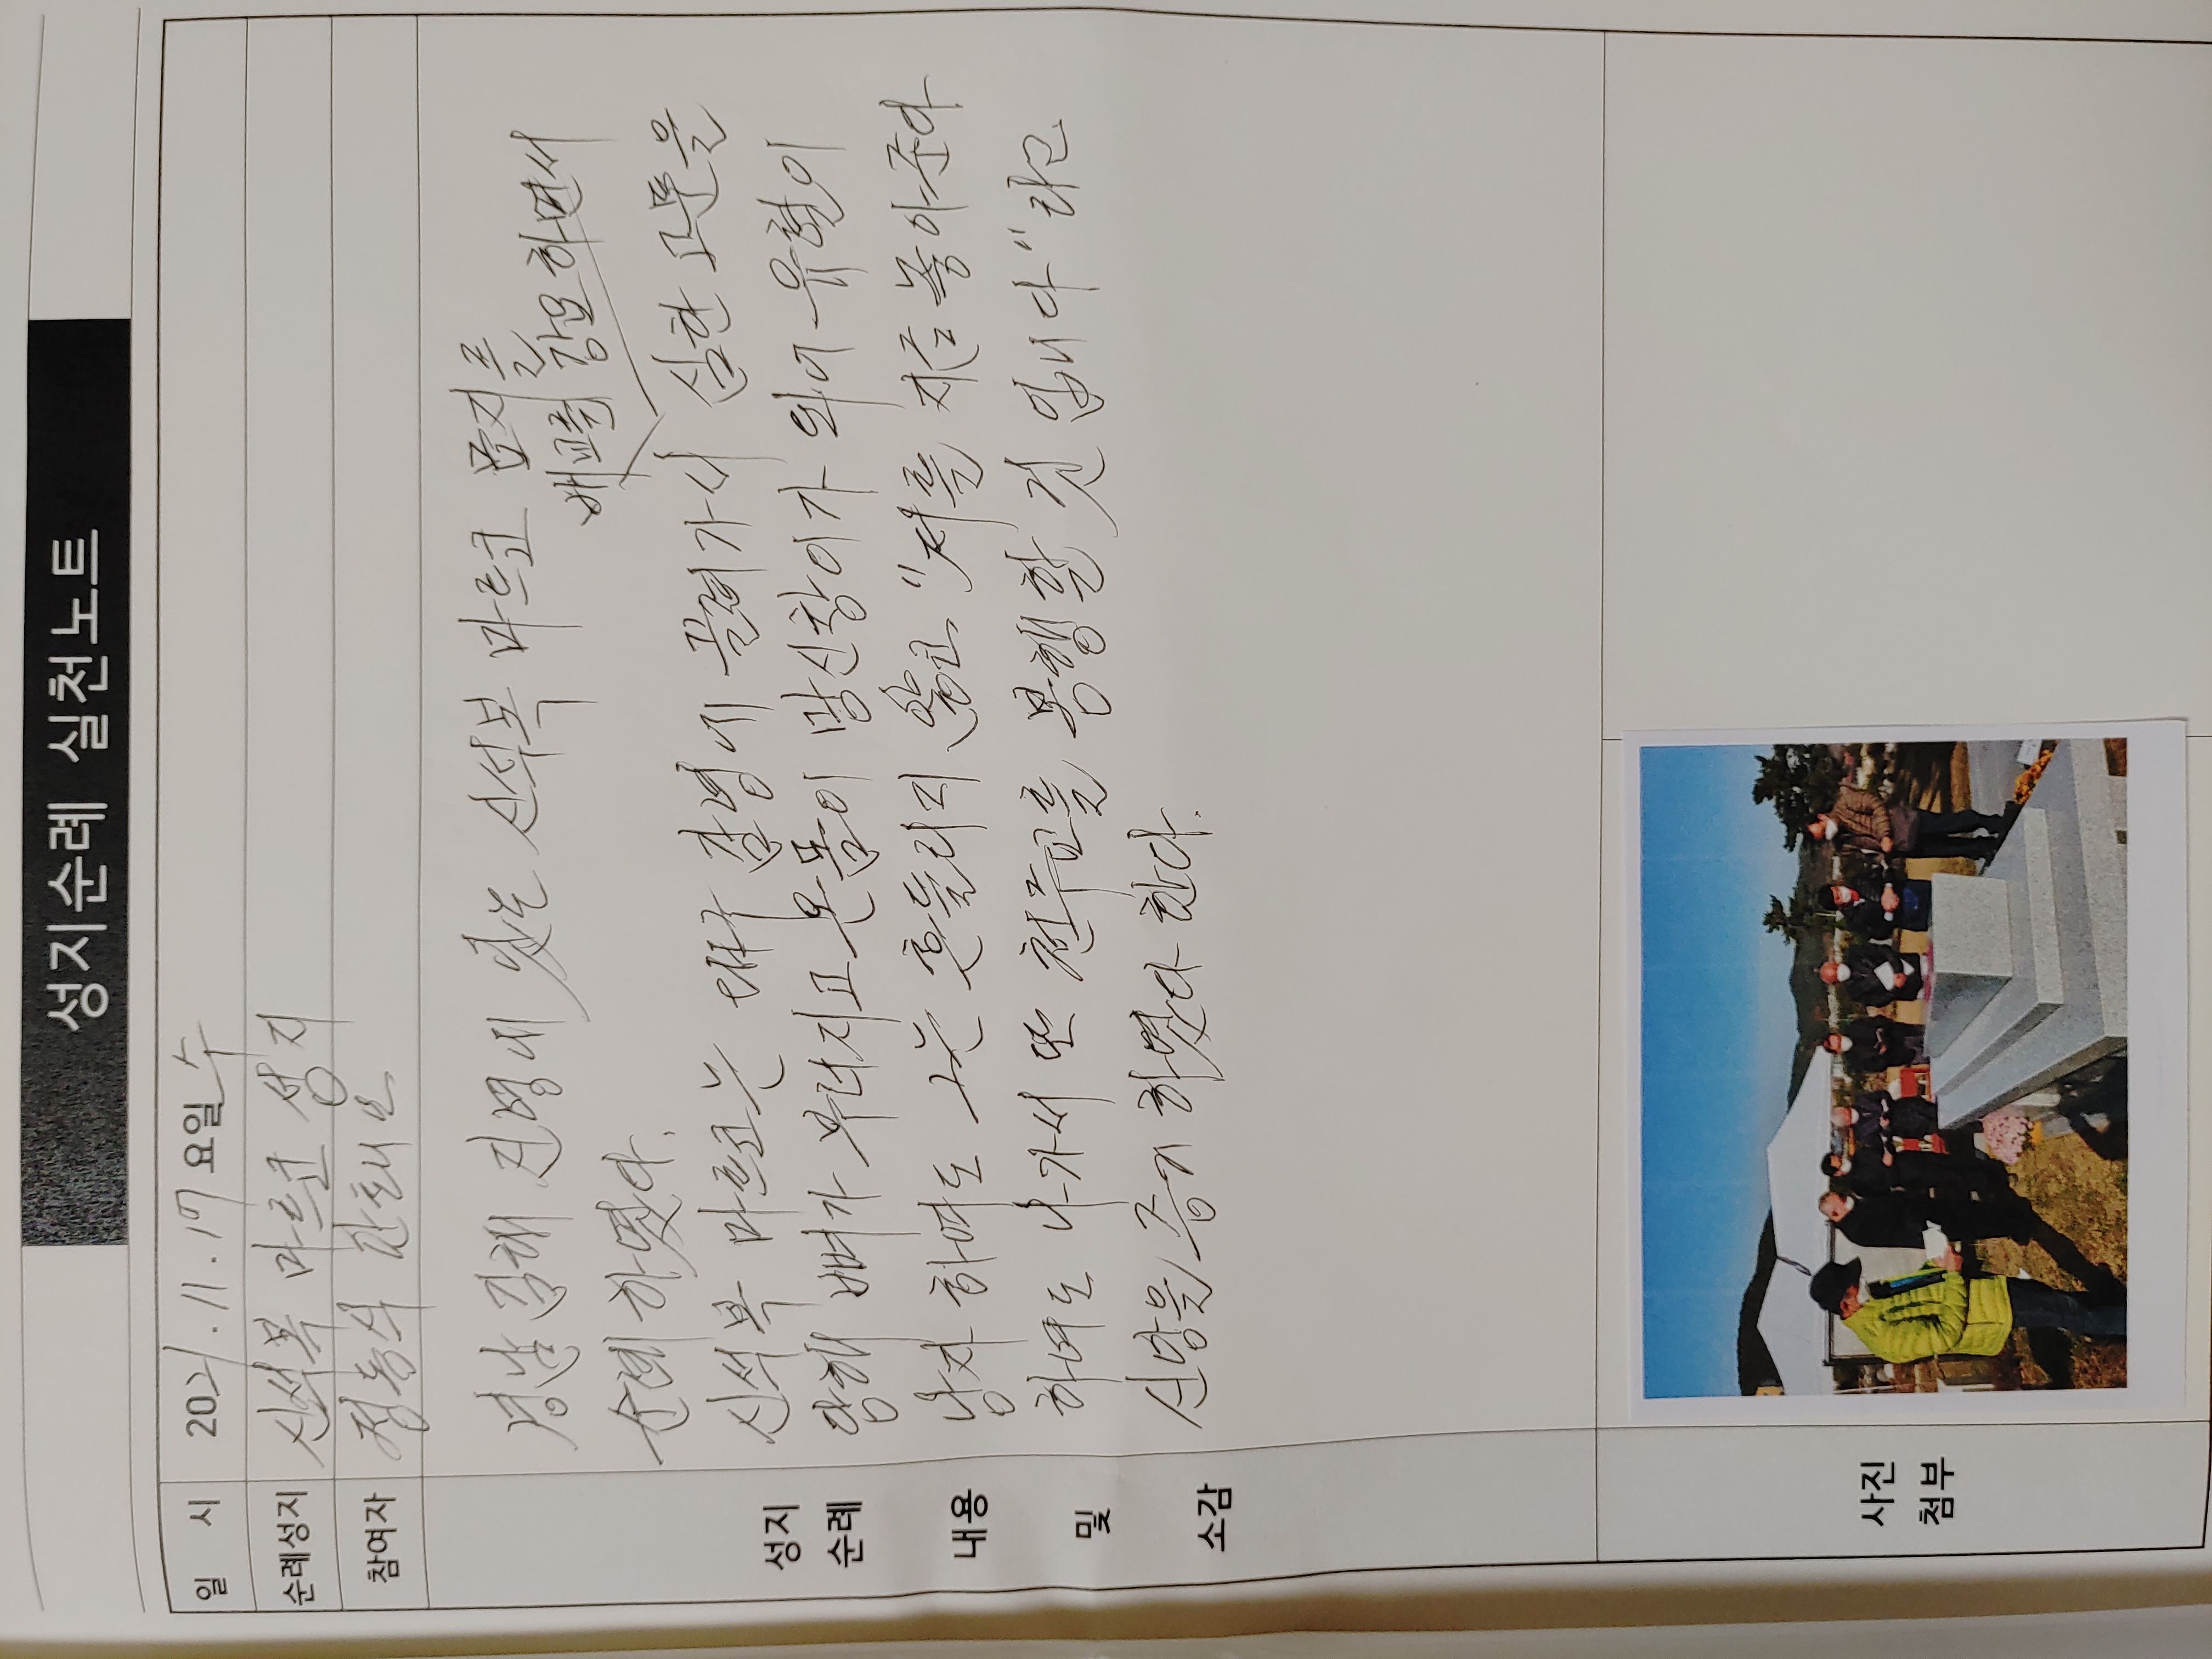 성지순례 실천노트
일 시 2021.11.17 요일 수
순례성지 신석복 마르코 성지
참여자 정동식 판탈레오
경남 김해 진영에 있는 신석복 마르코 묘지를
순례 하였다.
배교를 강요하면서
신석복 마르코는 대구 감영에 끌려가서 심한 고문을
당해 뼈가 부러지고 온몸이 망신창이가 되어 유혈이
낭자 하여도 그는 흔들리지 않고 "저를 지금 놓아준다
하여도 나가서 또 천주교를 봉행할 것 입니다" 라고
신앙을 증거 하였다 한다.
성지
순례
내용
및
소감
사진
첨부